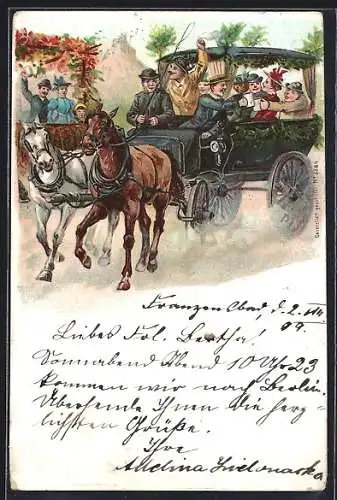 Franzensbad, d. 2. VIII
99.
Liebes Frl. Bertha!
Sonnabend Abend 10 Uhr 23
kommen wir nach Berlin.
Übersende Ihnen die herz-
lichsten Grüße.
Ihre
Gesetzlich geschützt No